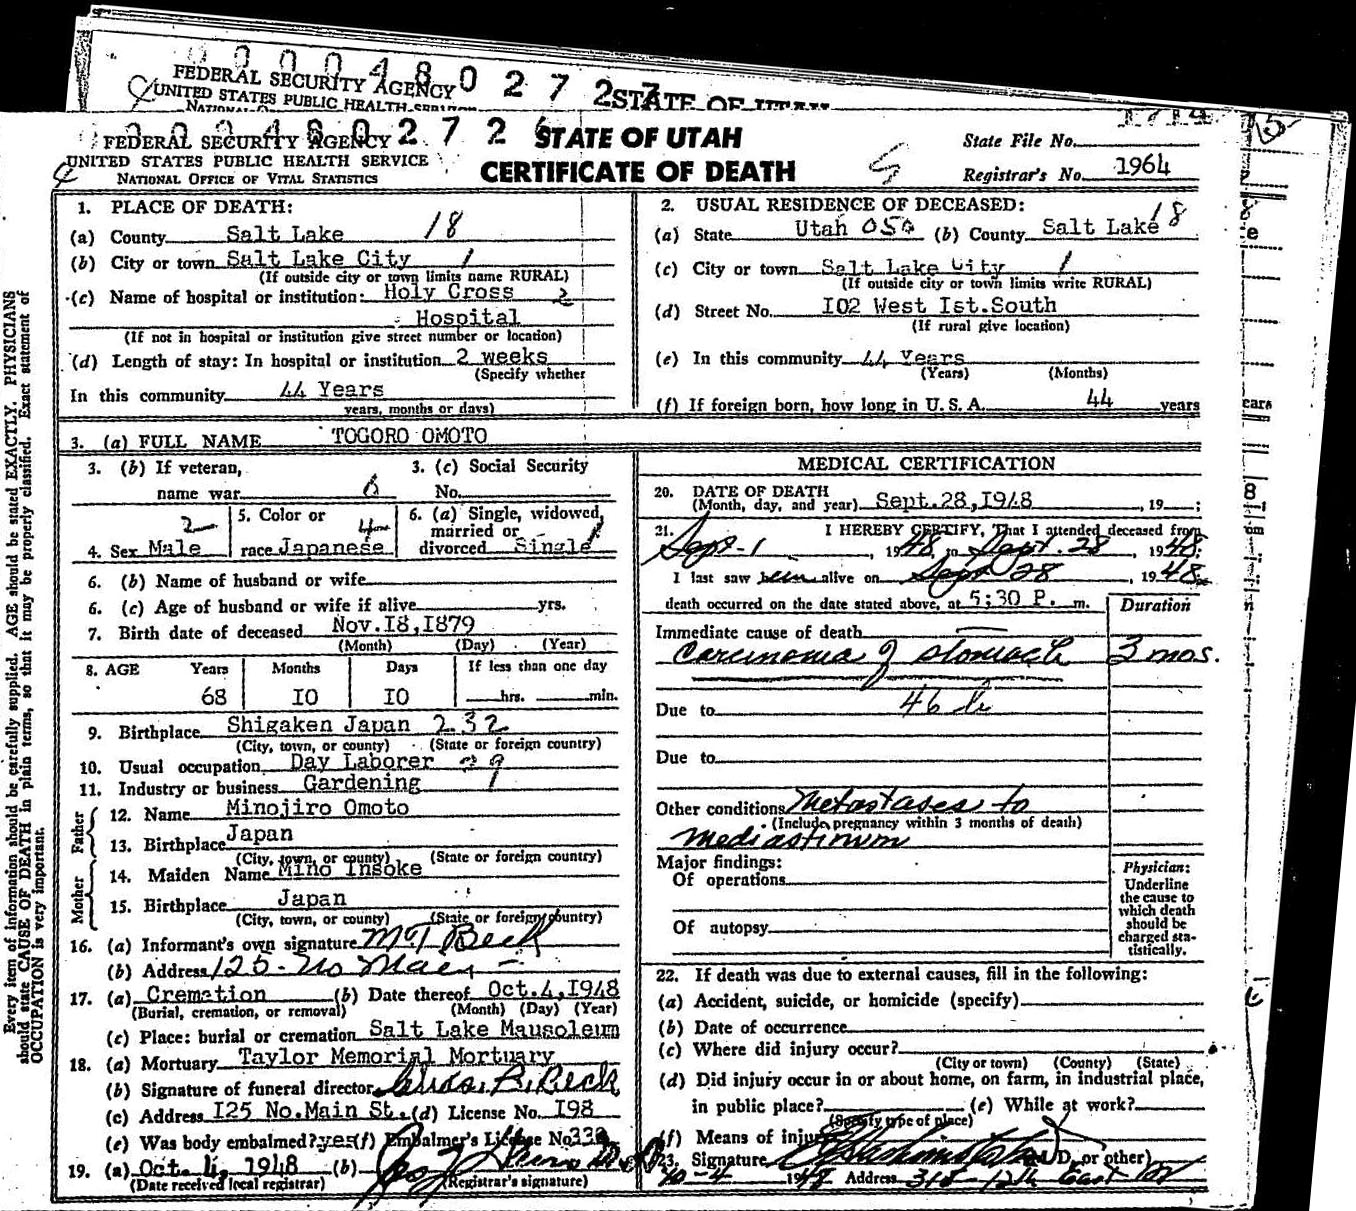 FEDERAL SECURITY AGENCY
UNITED STATES PUBLIC HEALTH SERVICE
STATE OF UTAH
FEDERAL SECURITY AGENCY
UNITED STATES PUBLIC HEALTH SERVICE
NATIONAL OFFICE OF VITAL STATISTICS
STATE OF UTAH
CERTIFICATE OF DEATH
State File No.
Registrar's No. 1964
1. PLACE OF DEATH: 18
(a) County Salt Lake
(b) City or town Salt Lake City 1
(If outside city or town limits name RURAL)
(c) Name of hospital or institution: Holy Cross 2
Hospital
(If not in hospital or institution give street number or location)
(d) Length of stay: In hospital or institution 2 weeks
(Specify whether
In this community 44 Years
years, months or days)
2. USUAL RESIDENCE OF DECEASED:
(a) State Utah 050 (b) County Salt Lake 18
(c) City or town Salt Lake City 1
(If outside city or town limits write RURAL)
(d) Street No. I02 West Ist.South
(If rural give location)
(e) In this community 44 Years
(Years) (Months)
(f) If foreign born, how long in U. S. A. 44 years
3. (a) FULL NAME TOGORO OMOTO
3. (b) If veteran,
name war
3. (c) Social Security
No.
4. Sex Male 2
5. Color or
race Japanese 4
6. (a) Single, widowed,
married or
divorced Single 1
6. (b) Name of husband or wife
6. (c) Age of husband or wife if alive yrs.
7. Birth date of deceased Nov.I8,I879
(Month) (Day) (Year)
8. AGE Years Months Days If less than one day
68 IO IO hrs. min.
9. Birthplace Shigaken Japan 232
(City, town, or county) (State or foreign country)
10. Usual occupation Day Laborer
11. Industry or business Gardening
Father
12. Name Minojiro Omoto
13. Birthplace Japan
(City, town, or county) (State or foreign country)
Mother
14. Maiden Name Mino Insoke
15. Birthplace Japan
(City, town, or county) (State or foreign country)
16. (a) Informant's own signature M T Beck
(b) Address 125 - No Main -
17. (a) Cremation (b) Date thereof Oct.4,I948
(Burial, cremation, or removal) (Month) (Day) (Year)
(c) Place: burial or cremation Salt Lake Mausoleum
18. (a) Mortuary Taylor Memorial Mortuary
(b) Signature of funeral director Beck
(c) Address I25 No.Main St. (d) License No. I98
(e) Was body embalmed? yes (f) Embalmer's License No.
19. (a) Oct. 4, 1948 (b)
(Date received local registrar) (Registrar's signature)
MEDICAL CERTIFICATION
20. DATE OF DEATH
(Month, day, and year) Sept.28,I948 , 19 ;
21. I HEREBY CERTIFY, That I attended deceased from
Sept-1 , 1948 to Sept. 28 1948;
I last saw him alive on Sept 28 , 1948
death occurred on the date stated above, at 5:30 P. m.
Duration
Immediate cause of death
Carcinoma of stomach 3 mos.
Due to 46
Due to
Other conditions Metastases to
(Include pregnancy within 3 months of death)
mediastinum
Major findings:
Of operations
Of autopsy
Physician:
Underline
the cause to
which death
should be
charged sta-
tistically.
22. If death was due to external causes, fill in the following:
(a) Accident, suicide, or homicide (specify)
(b) Date of occurrence
(c) Where did injury occur?
(City or town) (County) (State)
(d) Did injury occur in or about home, on farm, in industrial place,
in public place? (e) While at work?
(Specify type of place)
(f) Means of injury
23. Signature (M.D. or other)
10-4 1948 Address 315 - 12th East
Every item of information should be carefully supplied. AGE should be stated EXACTLY. PHYSICIANS
should state CAUSE OF DEATH in plain terms, so that it may be properly classified. Exact statement of
OCCUPATION is very important.